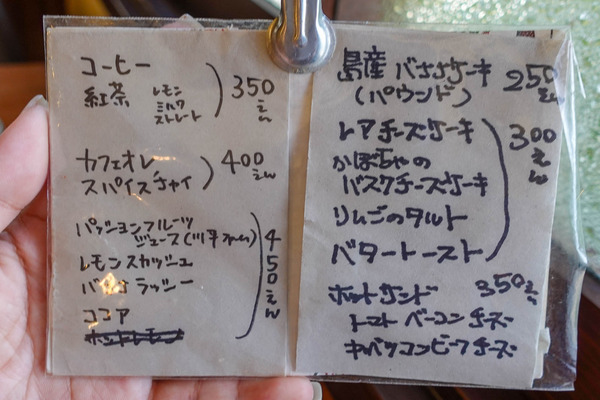 コーヒー
紅茶 レモン
ミルク
ストレート
350えん
カフェオレ
スパイスチャイ
400えん
パッションフルーツ
ジュース(川平ファーム)
レモンスカッシュ
ラッシー
ココア
450えん
島産 バナナケーキ
(パウンド)
250えん
レアチーズケーキ
かぼちゃの
バスクチーズケーキ
りんごのタルト
バタートースト
300えん
ホットサンド 350えん
トマト ベーコン チーズ
キャベツコンビーフチーズ